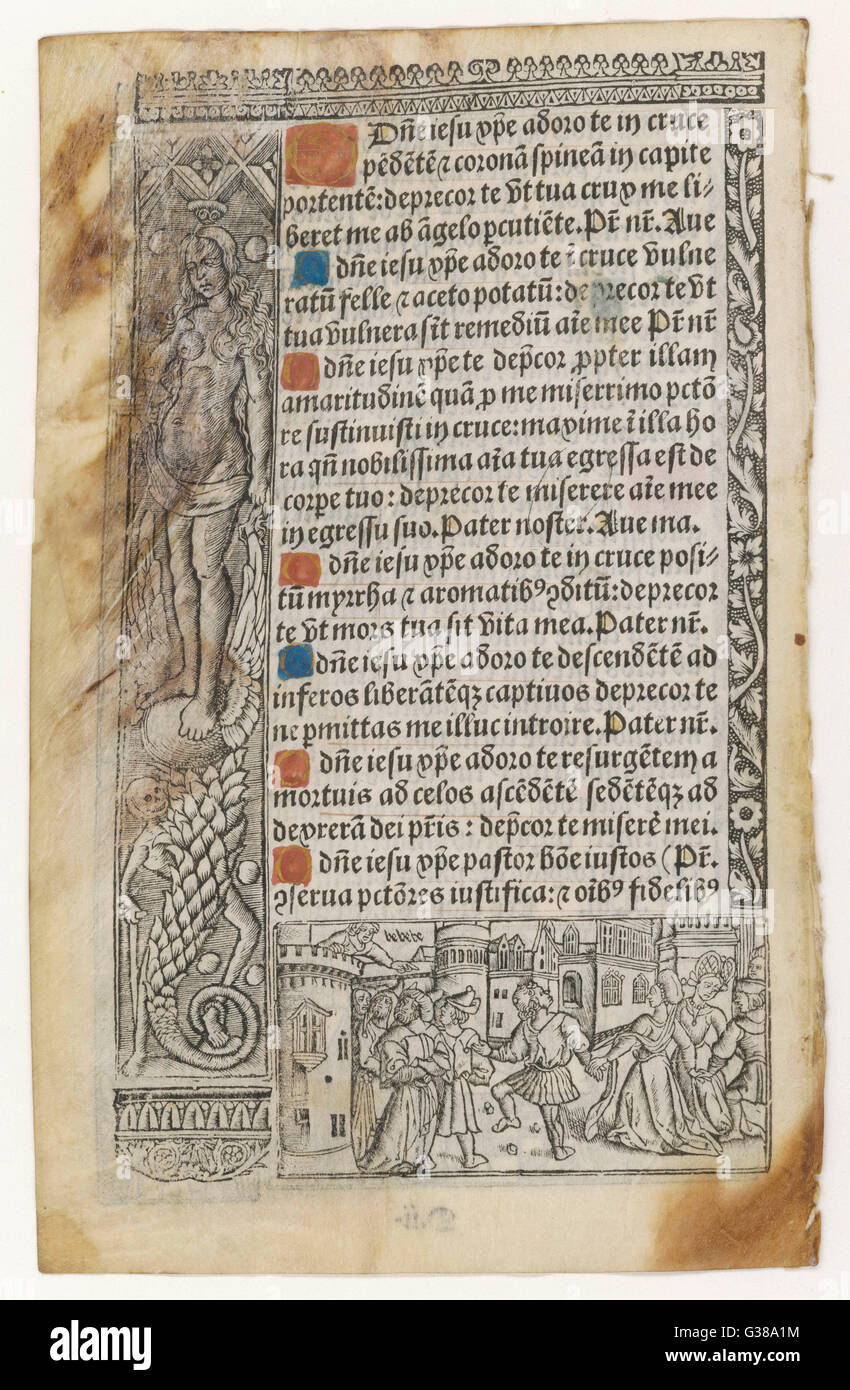 Dñe iesu xp̄e adoro te in cruce
pēdētē ⁊ coronā spineā in capite
portentē: deprecor te vt tua crux me li⸗
beret me ab āgelo ꝑcutiēte. Pr̄ nr̄. Aue
dñe iesu xp̄e adoro te ī cruce vulne
ratū felle ⁊ aceto potatū: deprecor te vt
tua vulnera sīt remediū aīe mee Pr̄ nr̄
dñe iesu xp̄e te dep̄cor ꝓpter illam
amaritudinē quā ꝓ me miserrimo pctō
re sustinuisti in cruce: maxime ī illa ho
ra qn̄ nobilissima aīa tua egressa est de
corpe tuo: deprecor te miserere aīe mee
in egressu suo. Pater noster. Aue ma.
dñe iesu xp̄e adoro te in cruce posi⸗
tū myrrha ⁊ aromatibꝰ ꝯditū: deprecor
te vt mors tua sit vita mea. Pater nr̄.
dñe iesu xp̄e adoro te descendētē ad
inferos liberātēqꝫ captiuos deprecor te
ne ꝑmittas me illuc introire. Pater nr̄.
dñe iesu xp̄e adoro te resurgētem a
mortuis ad celos ascēdētē sedētēqꝫ ad
dexterā dei pr̄is: dep̄cor te miserē mei.
dñe iesu xp̄e pastor bōe iustos (Pr̄.
ꝯserua pctōres iustifica: ⁊ oībꝰ fidelibꝰ
bebebe
alamy
Image ID: G38A1M
www.alamy.com